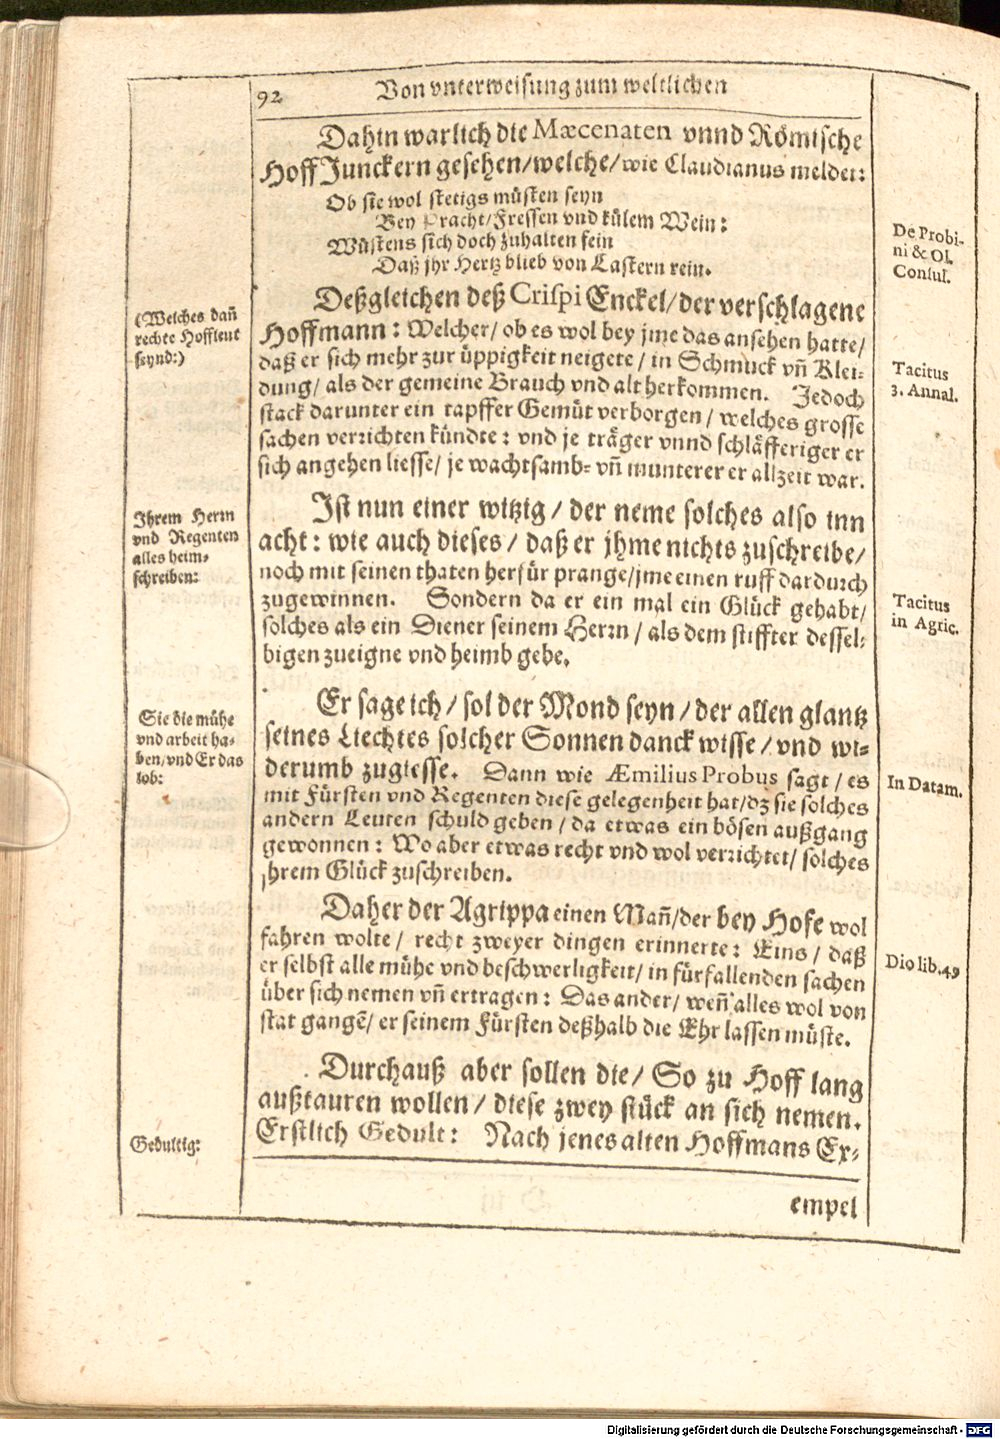 92
Von vnterweisung zum weltlichen
Dahin warlich die Mæcenaten vnnd Römische
Hoff Junckern gesehen/welche/wie Claudianus meldet:
Ob sie wol stetigs müsten seyn
Bey Pracht/Fressen vnd külem Wein:
Wüstens sich doch zuhalten fein
Daß jhr Hertz blieb von Lastern rein.
De Probi-
ni & Ol.
Consul.
Deßgleichen deß Crispi Enckel/der verschlagene
Hoffmann: Welcher/ ob es wol bey jme das ansehen hatte/
daß er sich mehr zur üppigkeit neigete/ in Schmuck vñ Klei-
dung/ als der gemeine Brauch vnd alt herkommen. Jedoch
stack darunter ein tapffer Gemüt verborgen/ welches grosse
sachen verrichten kündte: vnd je träger vnnd schläfferiger er
sich angehen liesse/ je wachtsamb= vñ munterer er allzeit war.
(Welches dañ
rechte Hoffleut
seynd:)
Tacitus
3. Annal.
Ist nun einer witzig/ der neme solches also inn
acht: wie auch dieses/ daß er jhme nichts zuschreibe/
noch mit seinen thaten herfür prange/jme einen ruff dardurch
zugewinnen. Sondern da er ein mal ein Glück gehabt/
solches als ein Diener seinem Herrn/ als dem stiffter dessel-
bigen zueigne vnd heimb gebe.
Ihrem Herrn
vnd Regenten
alles heim-
schreiben:
Tacitus
in Agric.
Er sage ich/ sol der Mond seyn/ der allen glantz
seines Liechtes solcher Sonnen danck wisse/ vnd wi-
derumb zugiesse. Dann wie Æmilius Probus sagt/ es
mit Fürsten vnd Regenten diese gelegenheit hat/dz sie solches
andern Leuten schuld geben/ da etwas ein bösen außgang
gewonnen: Wo aber etwas recht vnd wol verrichtet/ solches
jhrem Glück zuschreiben.
Sie die mühe
vnd arbeit ha-
ben/vnd Er das
lob:
In Datam.
Daher der Agrippa einen Mañ/der bey Hofe wol
fahren wolte/ recht zweyer dingen erinnerte: Eins/ daß
er selbst alle mühe vnd beschwerligkeit/ in fürfallenden sachen
über sich nemen vñ ertragen: Das ander/ weñ alles wol von
stat gangẽ/ er seinem Fürsten deßhalb die Ehr lassen müste.
Dio lib. 49
Durchauß aber sollen die/ So zu Hoff lang
außtauren wollen/ diese zwey stück an sich nemen.
Erstlich Gedult: Nach jenes alten Hoffmans Ex-
Gedultig:
empel
Digitalisierung gefördert durch die Deutsche Forschungsgemeinschaft - DFG